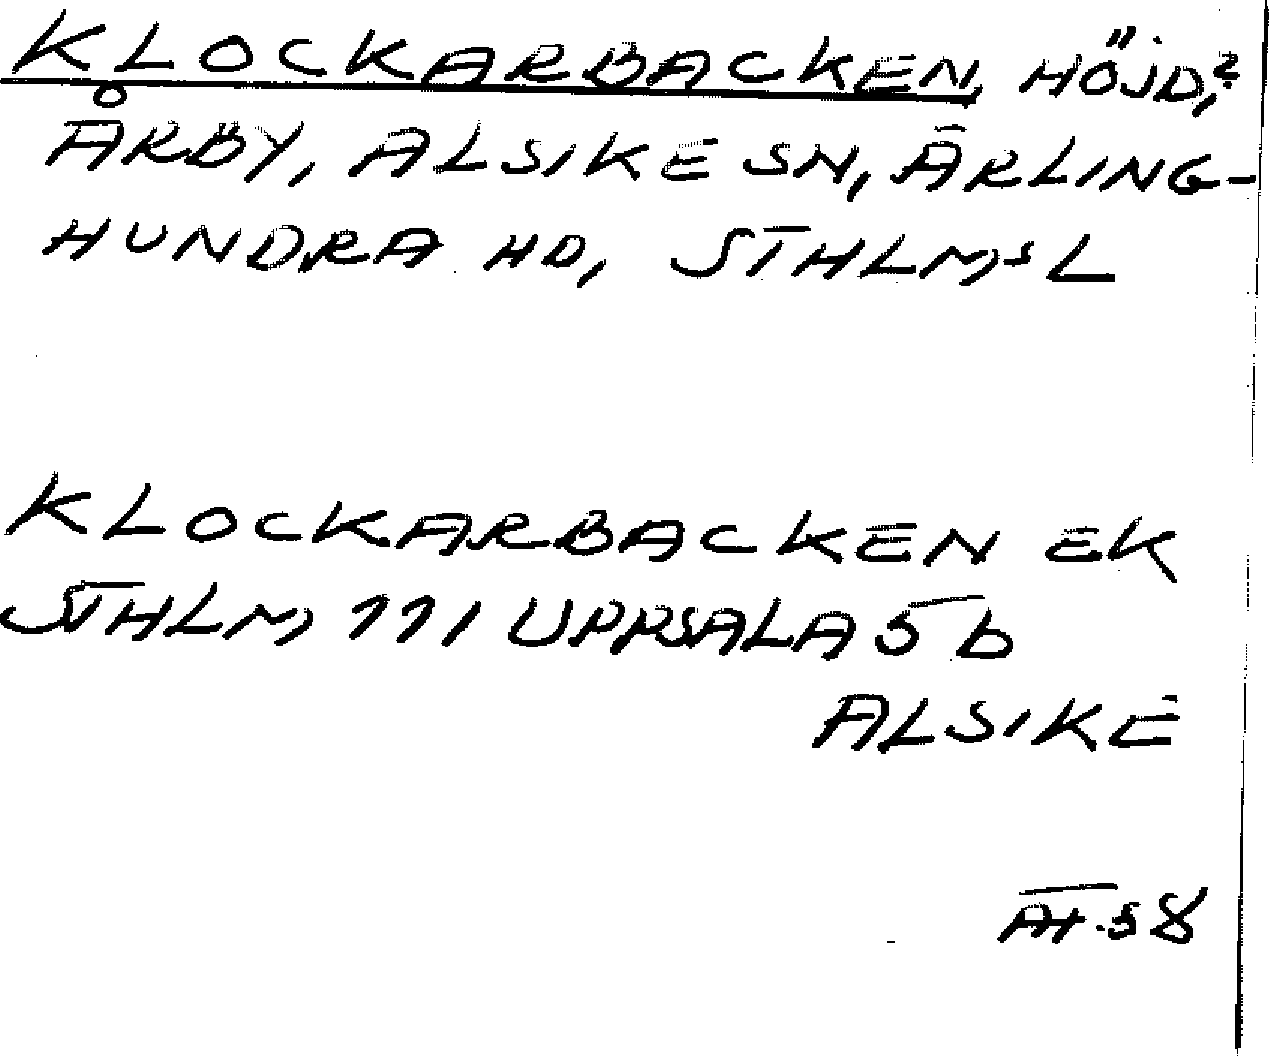 KLOCKARBACKEN, HÖJD,?
ÅRBY, ALSIKE SN, ÄRLING-
HUNDRA HD, STHLMS L
KLOCKARBACKEN EK
STHLM 111 UPPSALA 5 b
ALSIKE